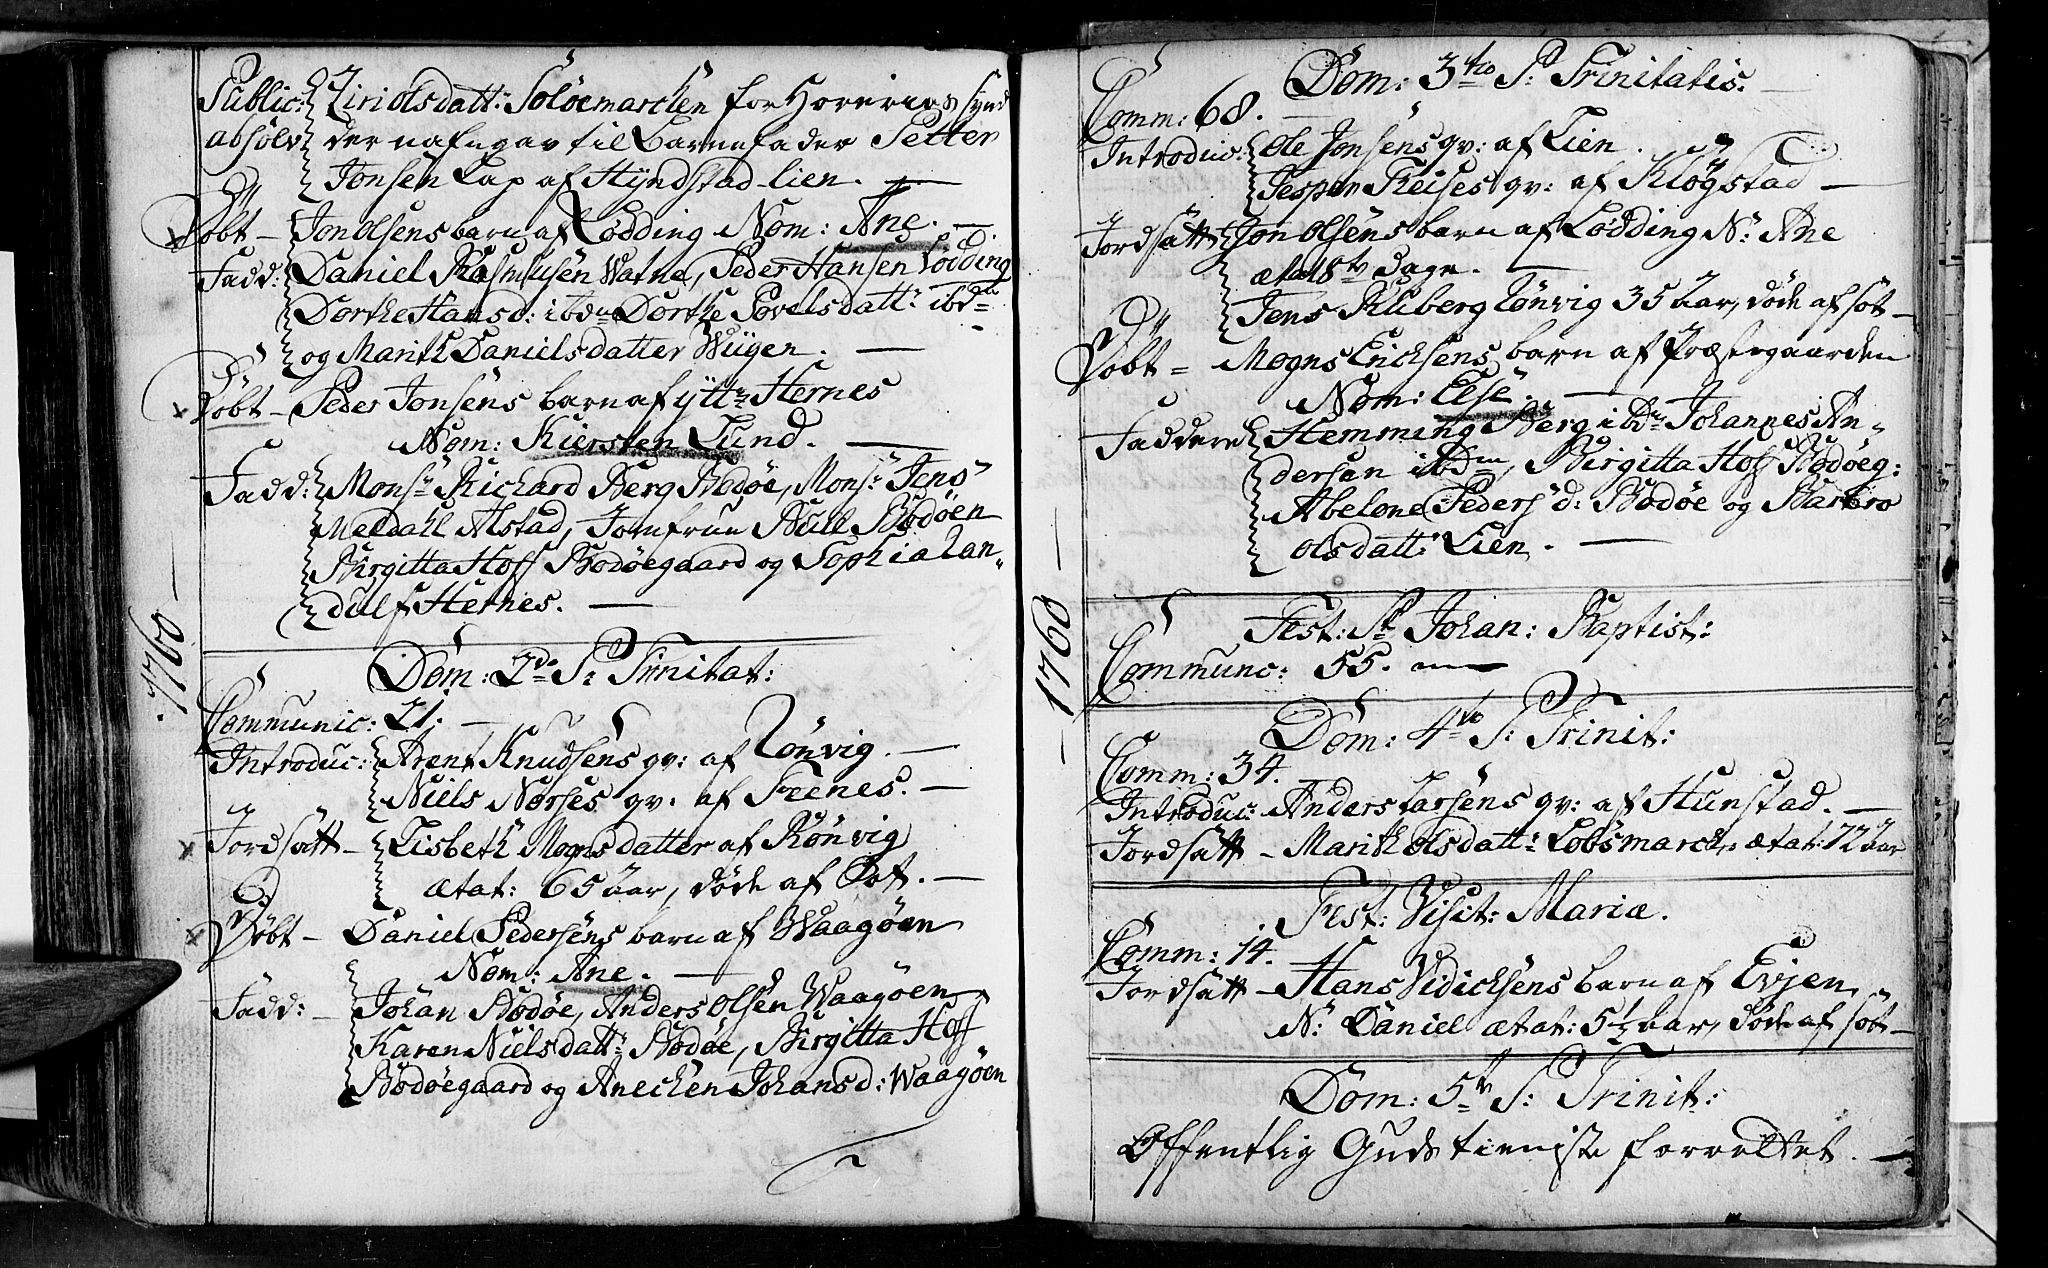 1760
Public: Ziri olsdatt: Soløemarchen for Horeries Synd
absolv der udlagde til Barnefader Petter
Jonsen Lap af Hyndstad-lien.
Døbt – Jon Olsens barn af Lødding Nom: Ane.
Fadd: Daniel Rasmusen Watne, Peder Hansen Lødding
Dorthe Hansd: ibdm Dorthe Povelsdatt: ibdm
og Marith Danielsdatter Wiigen.
Døbt – Peder Jonsens barn af ytt: Hernes
Nom: Kiersten Lund.
Fadd: Monsr Richard Berg Bodøe, Monsr Jens
Meldahl Alstad, Jomfrue Bull Bodøen
Birgitta Hoff Bodøegaard og Sophia Lan-
dulf Hernes.
Dom: 2do P: Trinitat:
Communic: 21.
Introduc: Arent Knudsens qv: af Rønvig.
Niels Norses qv. af Feenes.
Jordsatt – Lisbeth Mognsdatter af Rønvig
ætat: 65 aar, døde af Sot.
Døbt – Daniel Pedersens barn af Waagøen
Nom: Ane.
Fadd: – Johan Bodøe, Anders Olsen Waagøen
Karen Nielsdatt: Bodøe, Birgitta Hoff
Bodøegaard og Anechen Johansd: Waagøen
1760
Dom: 3tio P: Trinitatis.
Comm: 68.
Introduc: Ole Jonsens qv: af Lien.
Jesper Reises qv: af Kløgstad
Jordsatt Jon Olsens barn af Lødding N: Ane
æta 8te dage.
Jens Kliberg Lønvig 35 aar, døde af sot
Døbt – Mogns Erichsens barn af Præstegaarden
Nom: Else.
Faddere Hemming Berg ibdm Johannes An-
dersen ibdm, Birgitta Hoff Bodøeg:
Abelone Peders d: Bodøe og Barbro
olsdatt: Lien.
Fest: St Johan: Baptist:
Communc: 55.
Dom: 4to P: Trinit:
Comm: 34.
Introduc: Anders Larsens qv: af Hunstad.
Jordsatt – Marith olsdatt: Løbsmarch, ætat: 72 aar
Fest: Visit: Mariæ.
Comm: 14.
Jordsatt – Hans Didichsens barn af Evjen
N: Daniel ætat: 5½ aar, døde af sot
Dom: 5te P: Trinit:
Offentlig Guds tieniste forrettet.